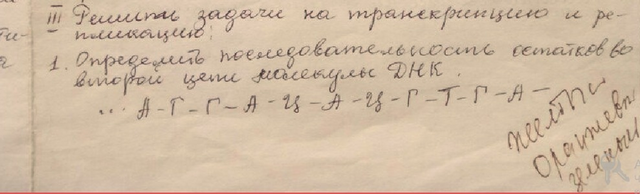 III Решить задачи на транскрипцию и ре-
пликацию:
1. Определить последовательность остатков во
второй цепи молекулы ДНК.
... А-Г-Г-А-Ц-А-Ц-Г-Т-Г-А-
желтый
зеленый